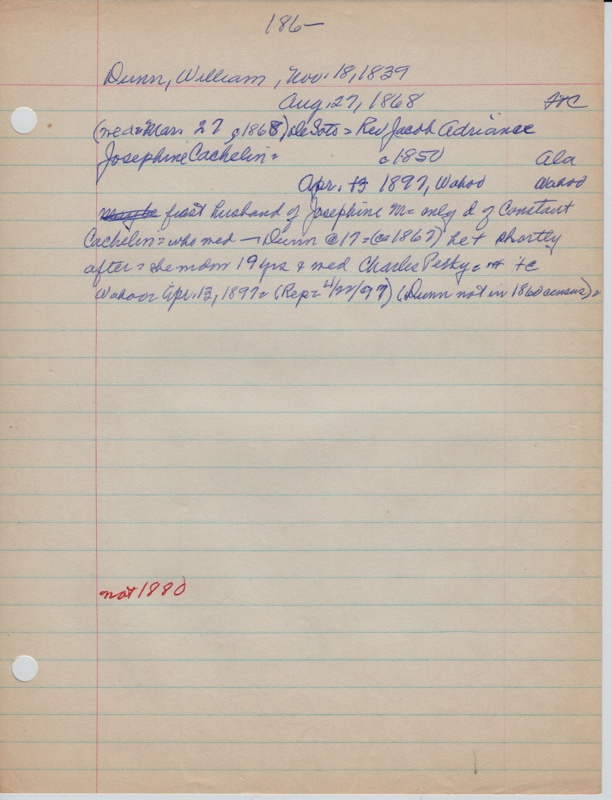 186-
Dunn, William, Nov. 18, 1839
Aug. 27, 1868 FtC
(med = Mar. 27, 1868) DeSoto = Rev Jacob Adriance
Josephine Cachelin = c 1850 Ala
Apr. 13 1897, Wahoo Wahoo
Maybe first husband of Josephine M = only d of Constant
Cachelin = who med — Dunn @ 17 = (ca 1867) he + shortly
after = she mom 19 yrs & med Charles Pesky = +c
Wahoo = Apr. 13, 1897 = (Rep = 4/22/97) (Dunn not in 1860 census) =
not 1880